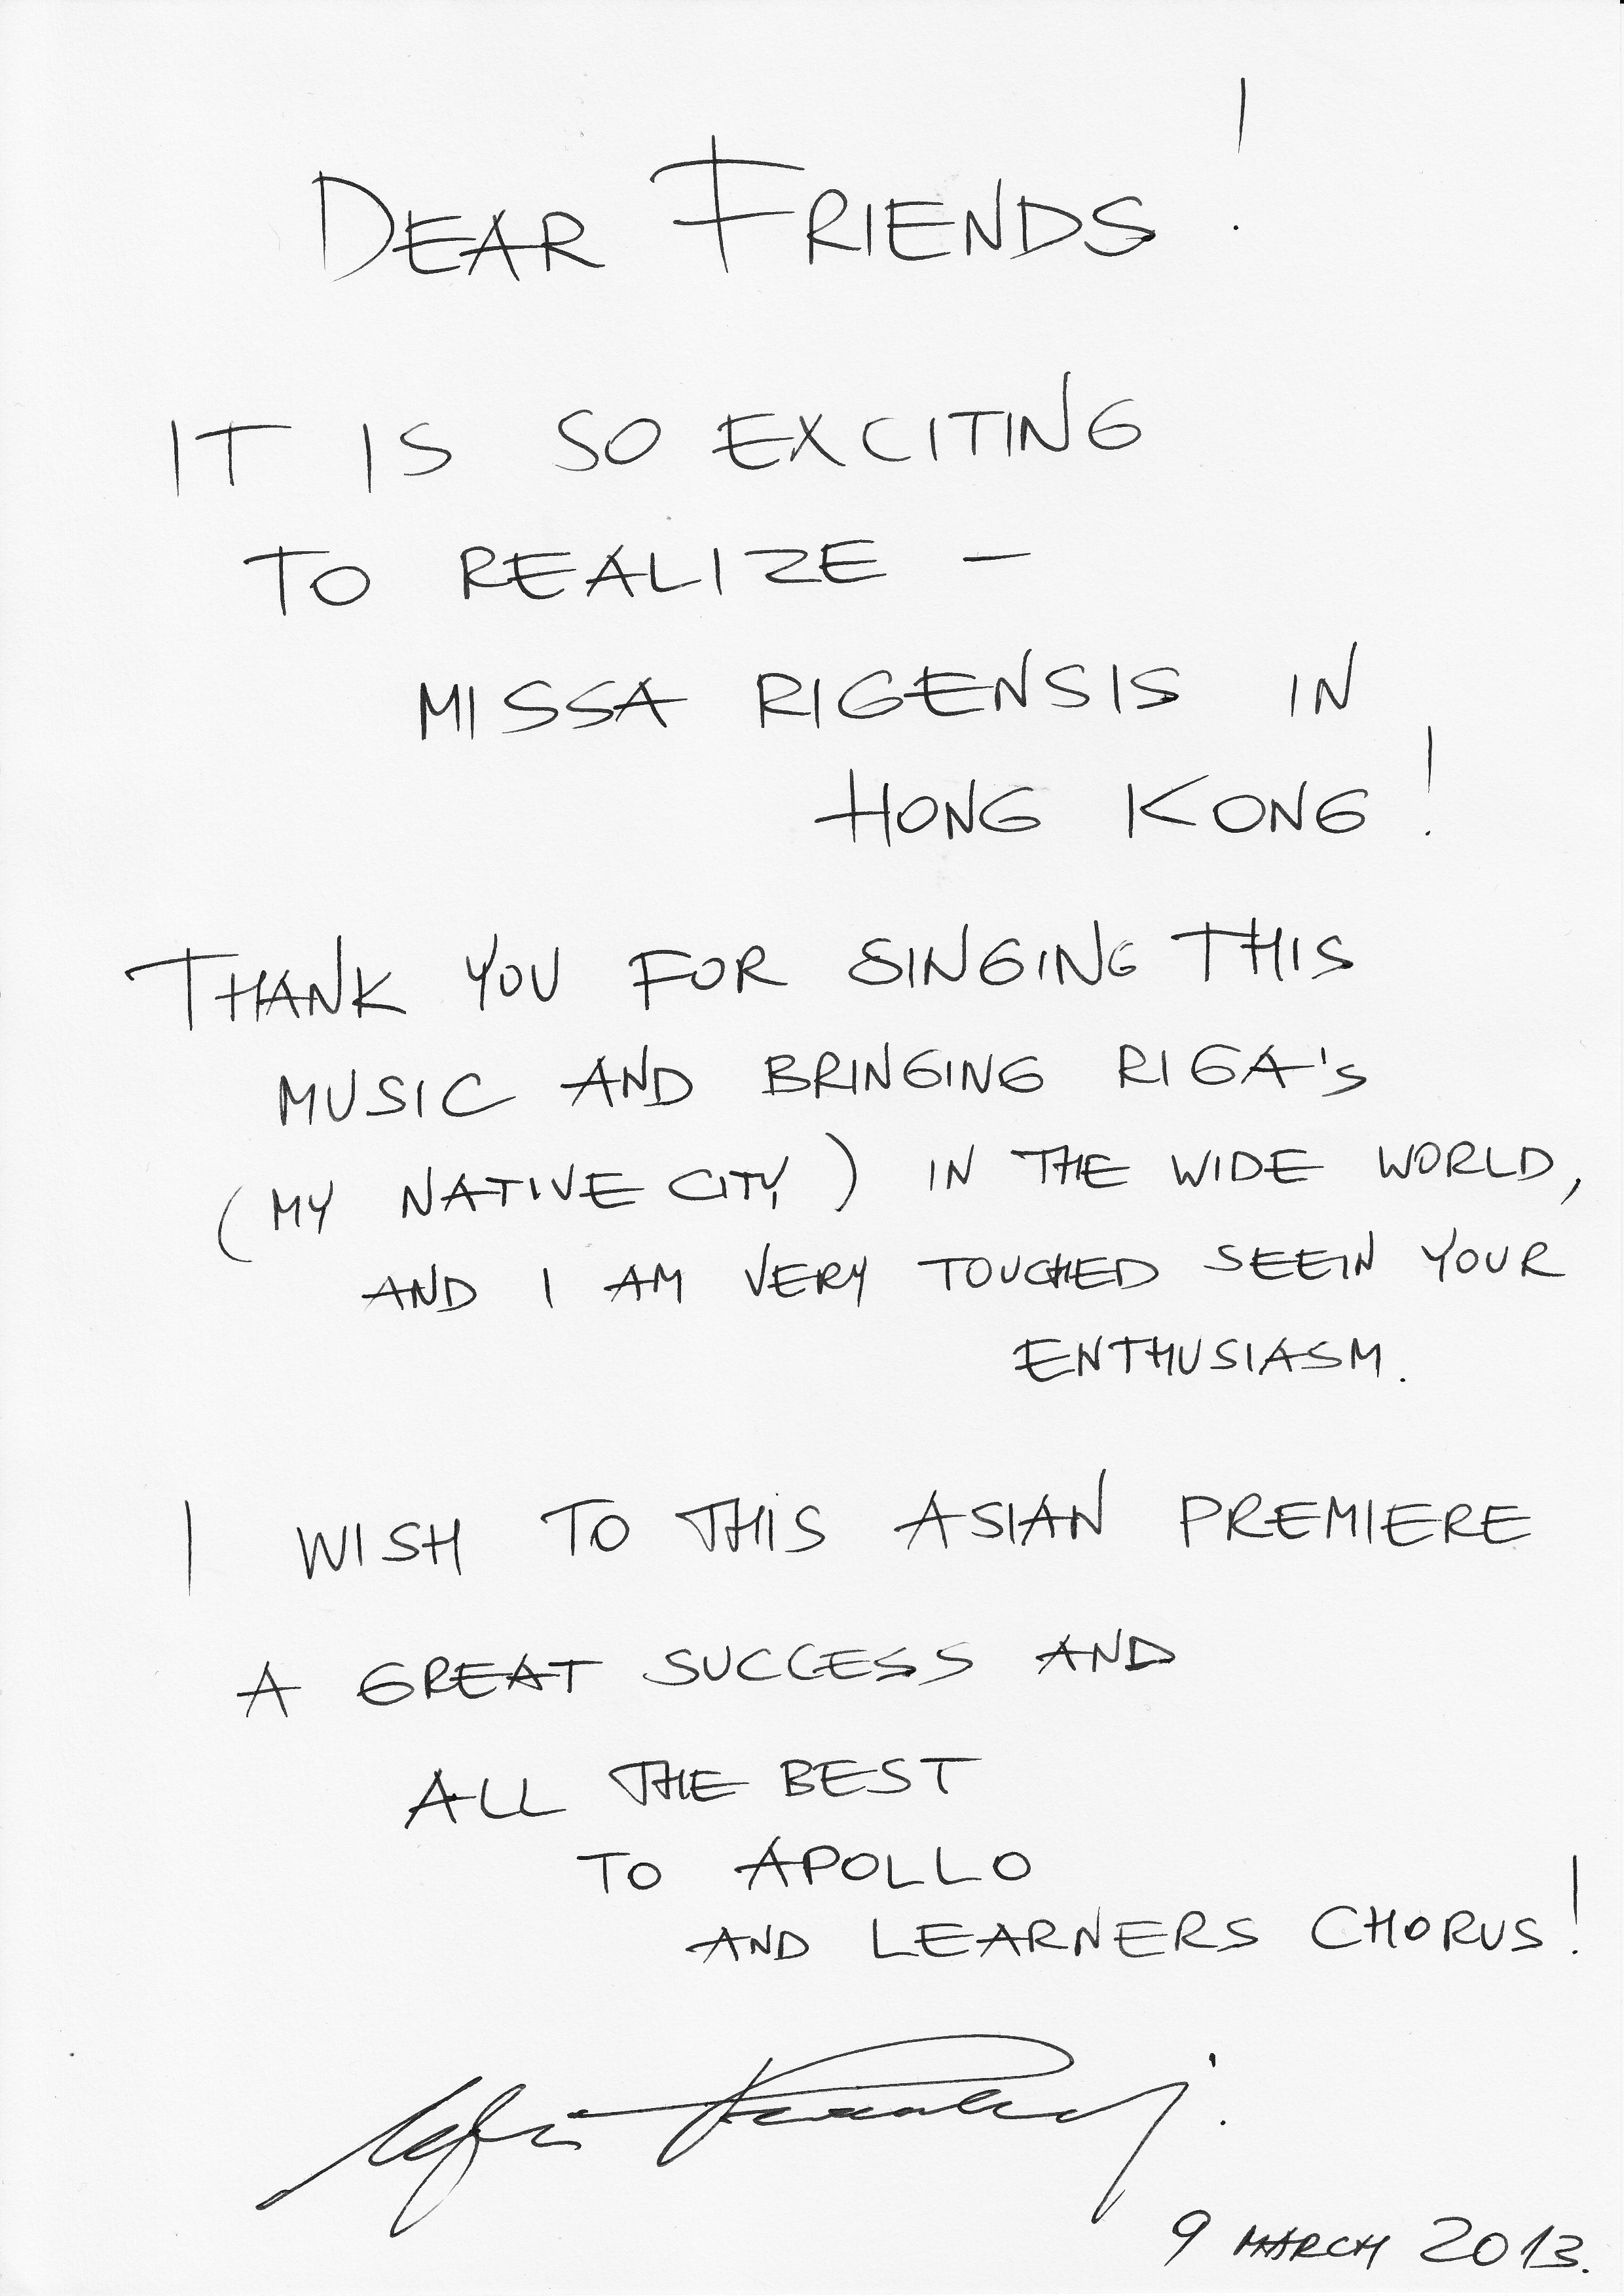 DEAR FRIENDS!
IT IS SO EXCITING
TO REALIZE -
MISSA RIGENSIS IN
HONG KONG!
THANK YOU FOR SINGING THIS
MUSIC AND BRINGING RIGA's
(MY NATIVE CITY) IN THE WIDE WORLD,
AND I AM VERY TOUCHED SEEIN YOUR
ENTHUSIASM.
I WISH TO THIS ASIAN PREMIERE
A GREAT SUCCESS AND
ALL THE BEST
TO APOLLO
AND LEARNERS CHORUS!
9 MARCH 2013.